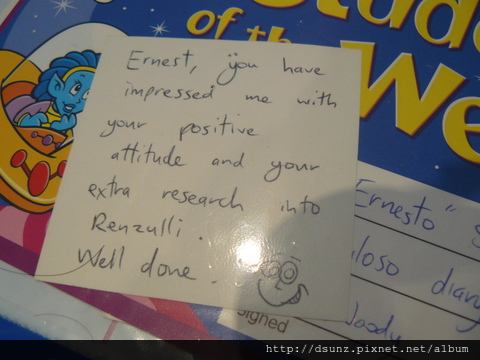 Ernest, you have
impressed me with
your positive
attitude and your
extra research into
Renzulli.
Well done.
of the We
Ernesto"
diary
signed
http://dsunz.pixnet.net/album